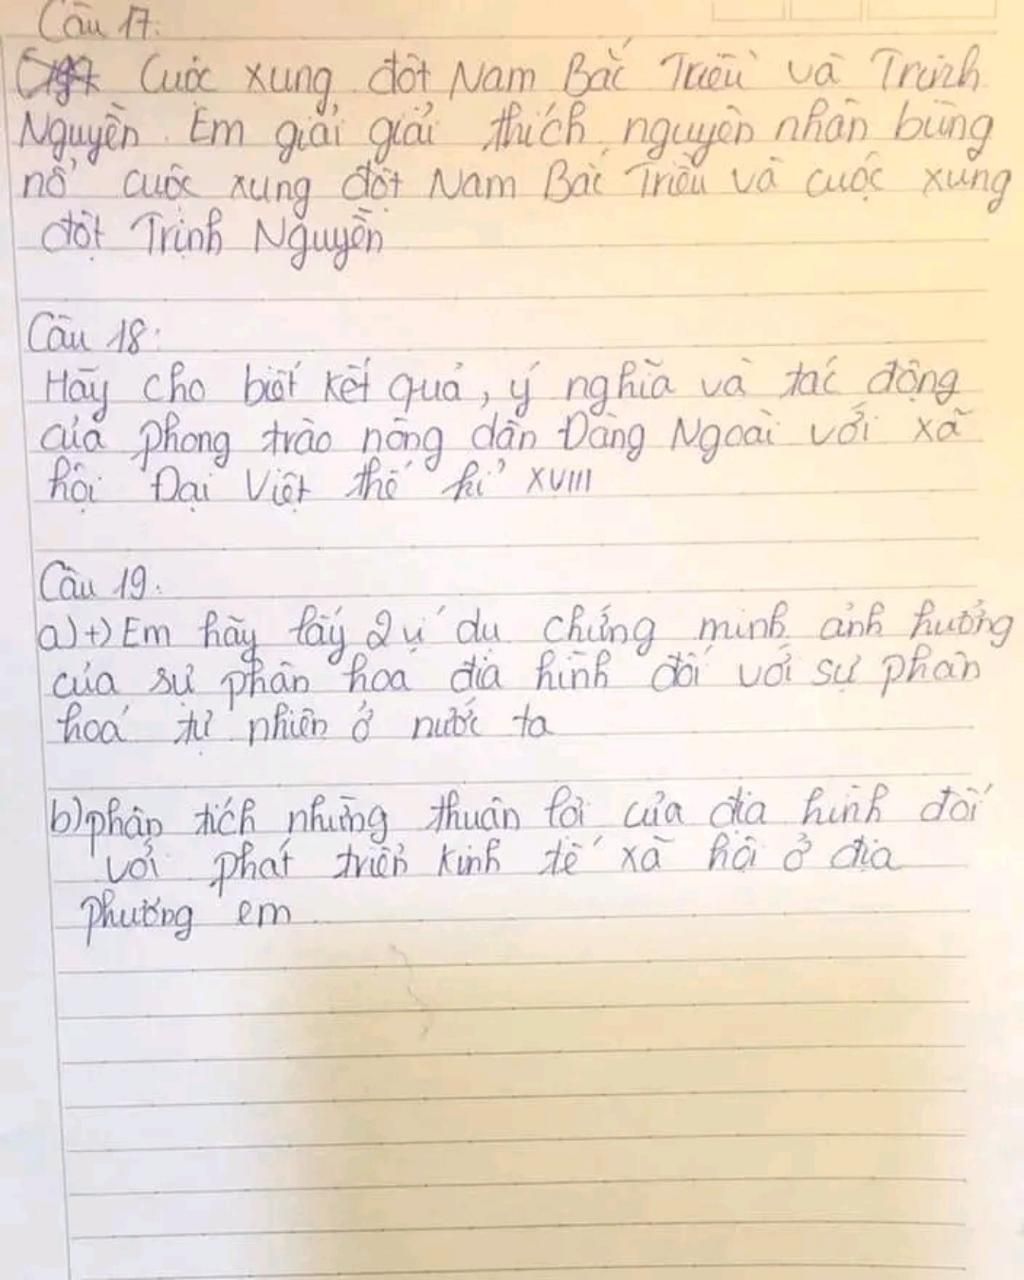 Câu 17:
Cuộc xung đột Nam Bắc Triều và Trịnh
Nguyễn. Em giải giải thích nguyên nhân bùng
nổ cuộc xung đột Nam Bắc Triều và cuộc xung
đột Trịnh Nguyễn
Câu 18:
Hãy cho biết kết quả, ý nghĩa và tác động
của phong trào nông dân Đàng Ngoài với xã
hội Đại Việt thế kỉ XVIII
Câu 19:
a)+) Em hãy lấy 2 ví dụ chứng minh ảnh hưởng
của sự phân hoá địa hình đối với sự phân
hoá tự nhiên ở nước ta
b) phân tích những thuận lợi của địa hình đối
với phát triển kinh tế xã hội ở địa
phương em